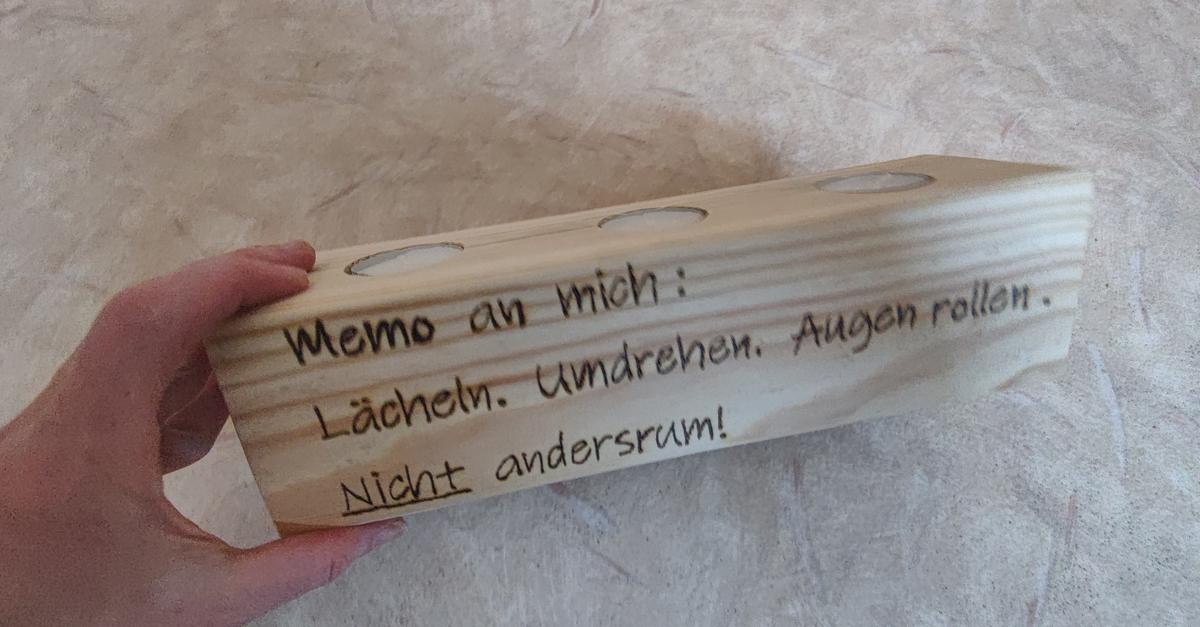 Memo an mich:
Lächeln. Umdrehen. Augen rollen.
Nicht andersrum!